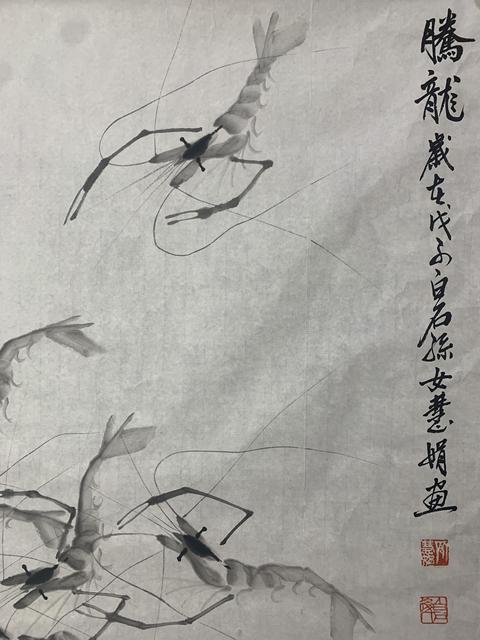 騰龍 歲在戊子白石孫女慧娟畫